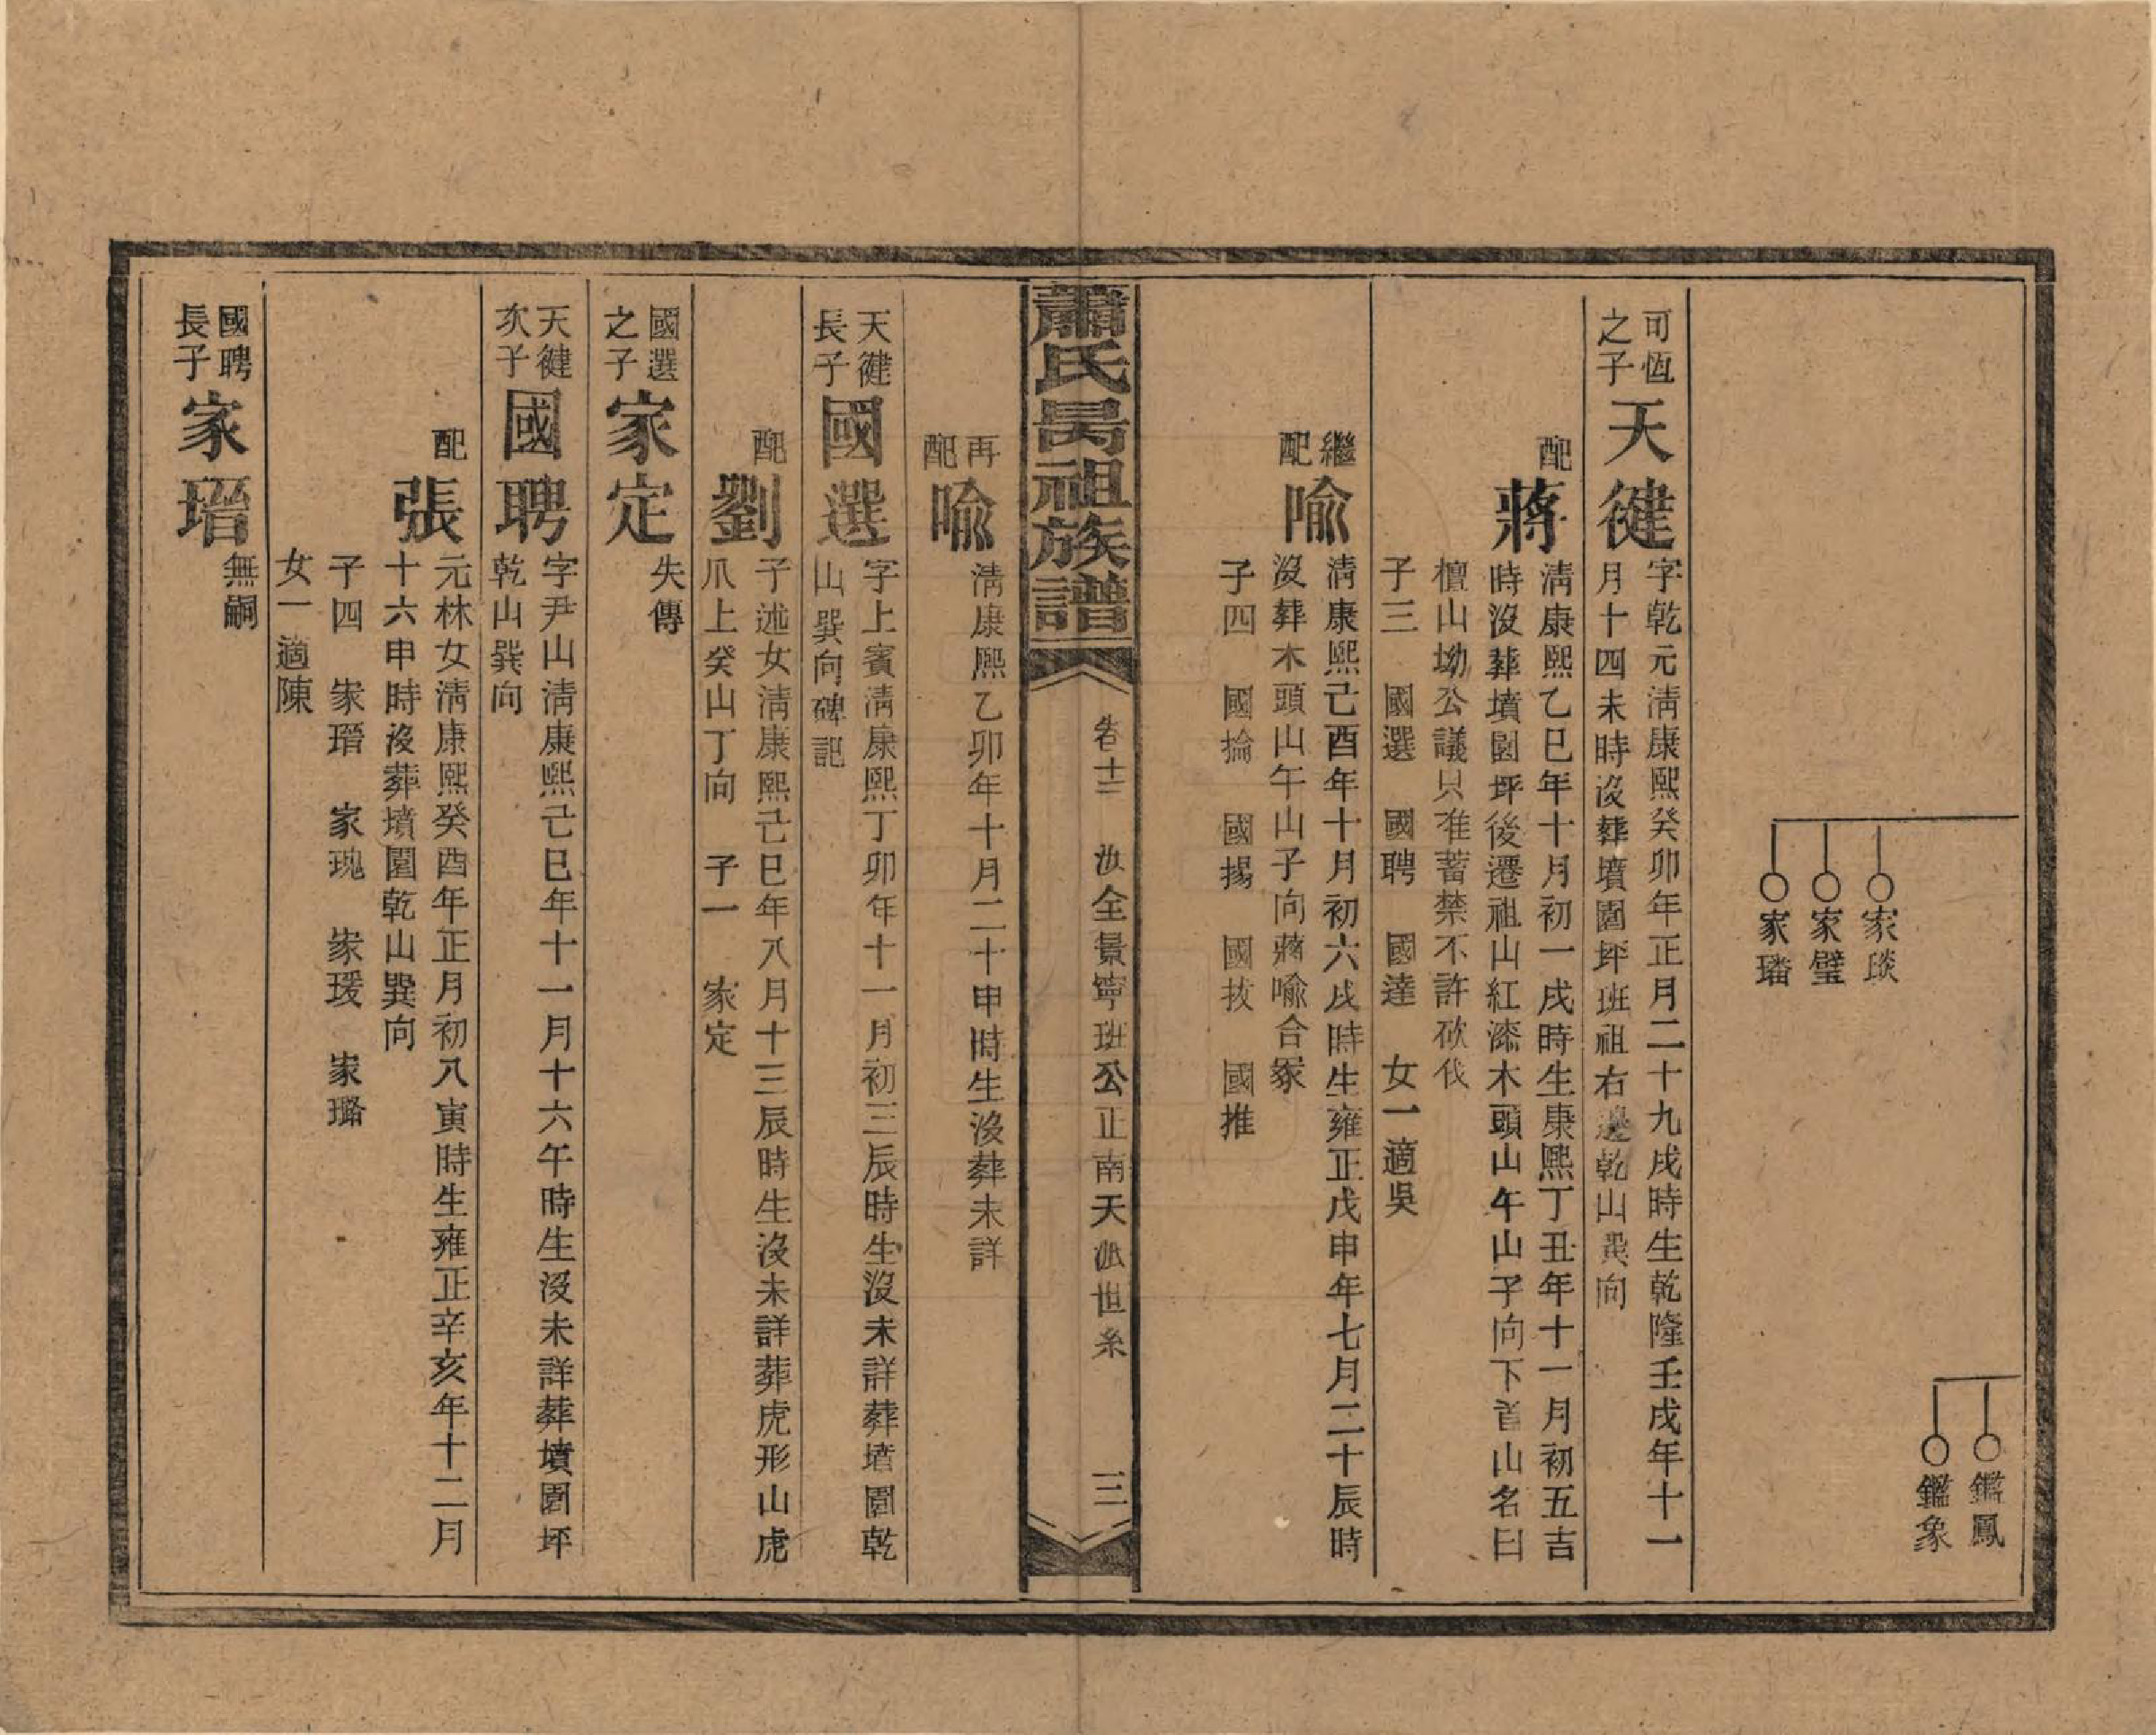 鑑鳳
鑑象
家琰
家璧
家璠
可恆
之子
天徤
字乾元淸康熙癸卯年正月二十九戌時生乾隆壬戌年十一
月十四未時沒葬墳園坪班祖右邊乾山巽向
配
蔣
淸康熙乙巳年十月初一戌時生康熙丁丑年十一月初五吉
時沒葬墳園坪後遷祖山紅漆木頭山午山子向下首山名曰
檀山坳公議只准蓄禁不許砍伐
子三 國選 國聘 國達 女一適吳
繼
配
喩
淸康熙己酉年十月初六戌時生雍正戊申年七月二十辰時
沒葬木頭山午山子向蔣喩合冢
子四 國掄 國揚 國拔 國推
蕭氏昺祖族譜
卷十三 汝全景寧班公正南天派世系 三
再
配
喩
淸康熙乙卯年十月二十申時生沒葬未詳
天徤
長子
國選
字上賓淸康熙丁卯年十一月初三辰時生沒未詳葬墳園乾
山巽向碑記
配
劉
子述女淸康熙己巳年八月十三辰時生沒未詳葬虎形山虎
爪上癸山丁向 子一 家定
國選
之子
家定
失傳
天徤
次子
國聘
字尹山淸康熙己巳年十一月十六午時生沒未詳葬墳園坪
乾山巽向
配
張
元林女淸康熙癸酉年正月初八寅時生雍正辛亥年十二月
十六申時沒葬墳園乾山巽向
子四 家瑨 家瑰 家瑗 家璐
女一適陳
國聘
長子
家瑨
無嗣